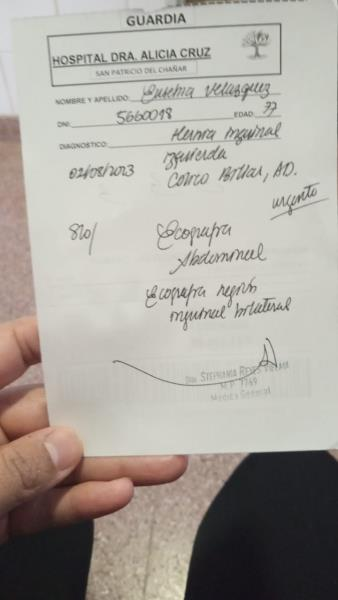 GUARDIA
HOSPITAL DRA. ALICIA CRUZ
SAN PATRICIO DEL CHAÑAR
NOMBRE Y APELLIDO: Eusema Velazquez
DNI: 5660018 EDAD: 77
DIAGNOSTICO: Hernia Inguinal
Izquierda
02/08/2023 Colico Biliar, AD.
urgente
S/o/ Ecografia
Abdominal
Ecografia región
inguinal bilateral
Dra. STEPHANIA REYES
M.P. 7769
Medica General